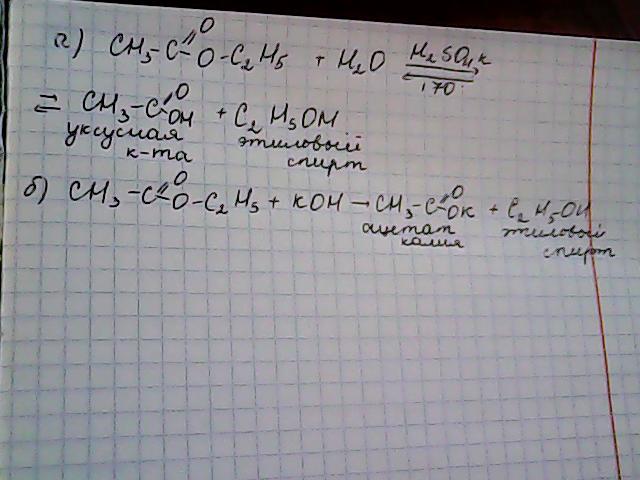 а) CH3-C=O O-C2H5 + H2O H2SO4 к
170°
⇌ CH3-C=O OH + C2H5OH
уксусная этиловый
к-та спирт
б) CH3-C=O O-C2H5 + KOH → CH3-C=O OK + C2H5OH
ацетат этиловый
калия спирт